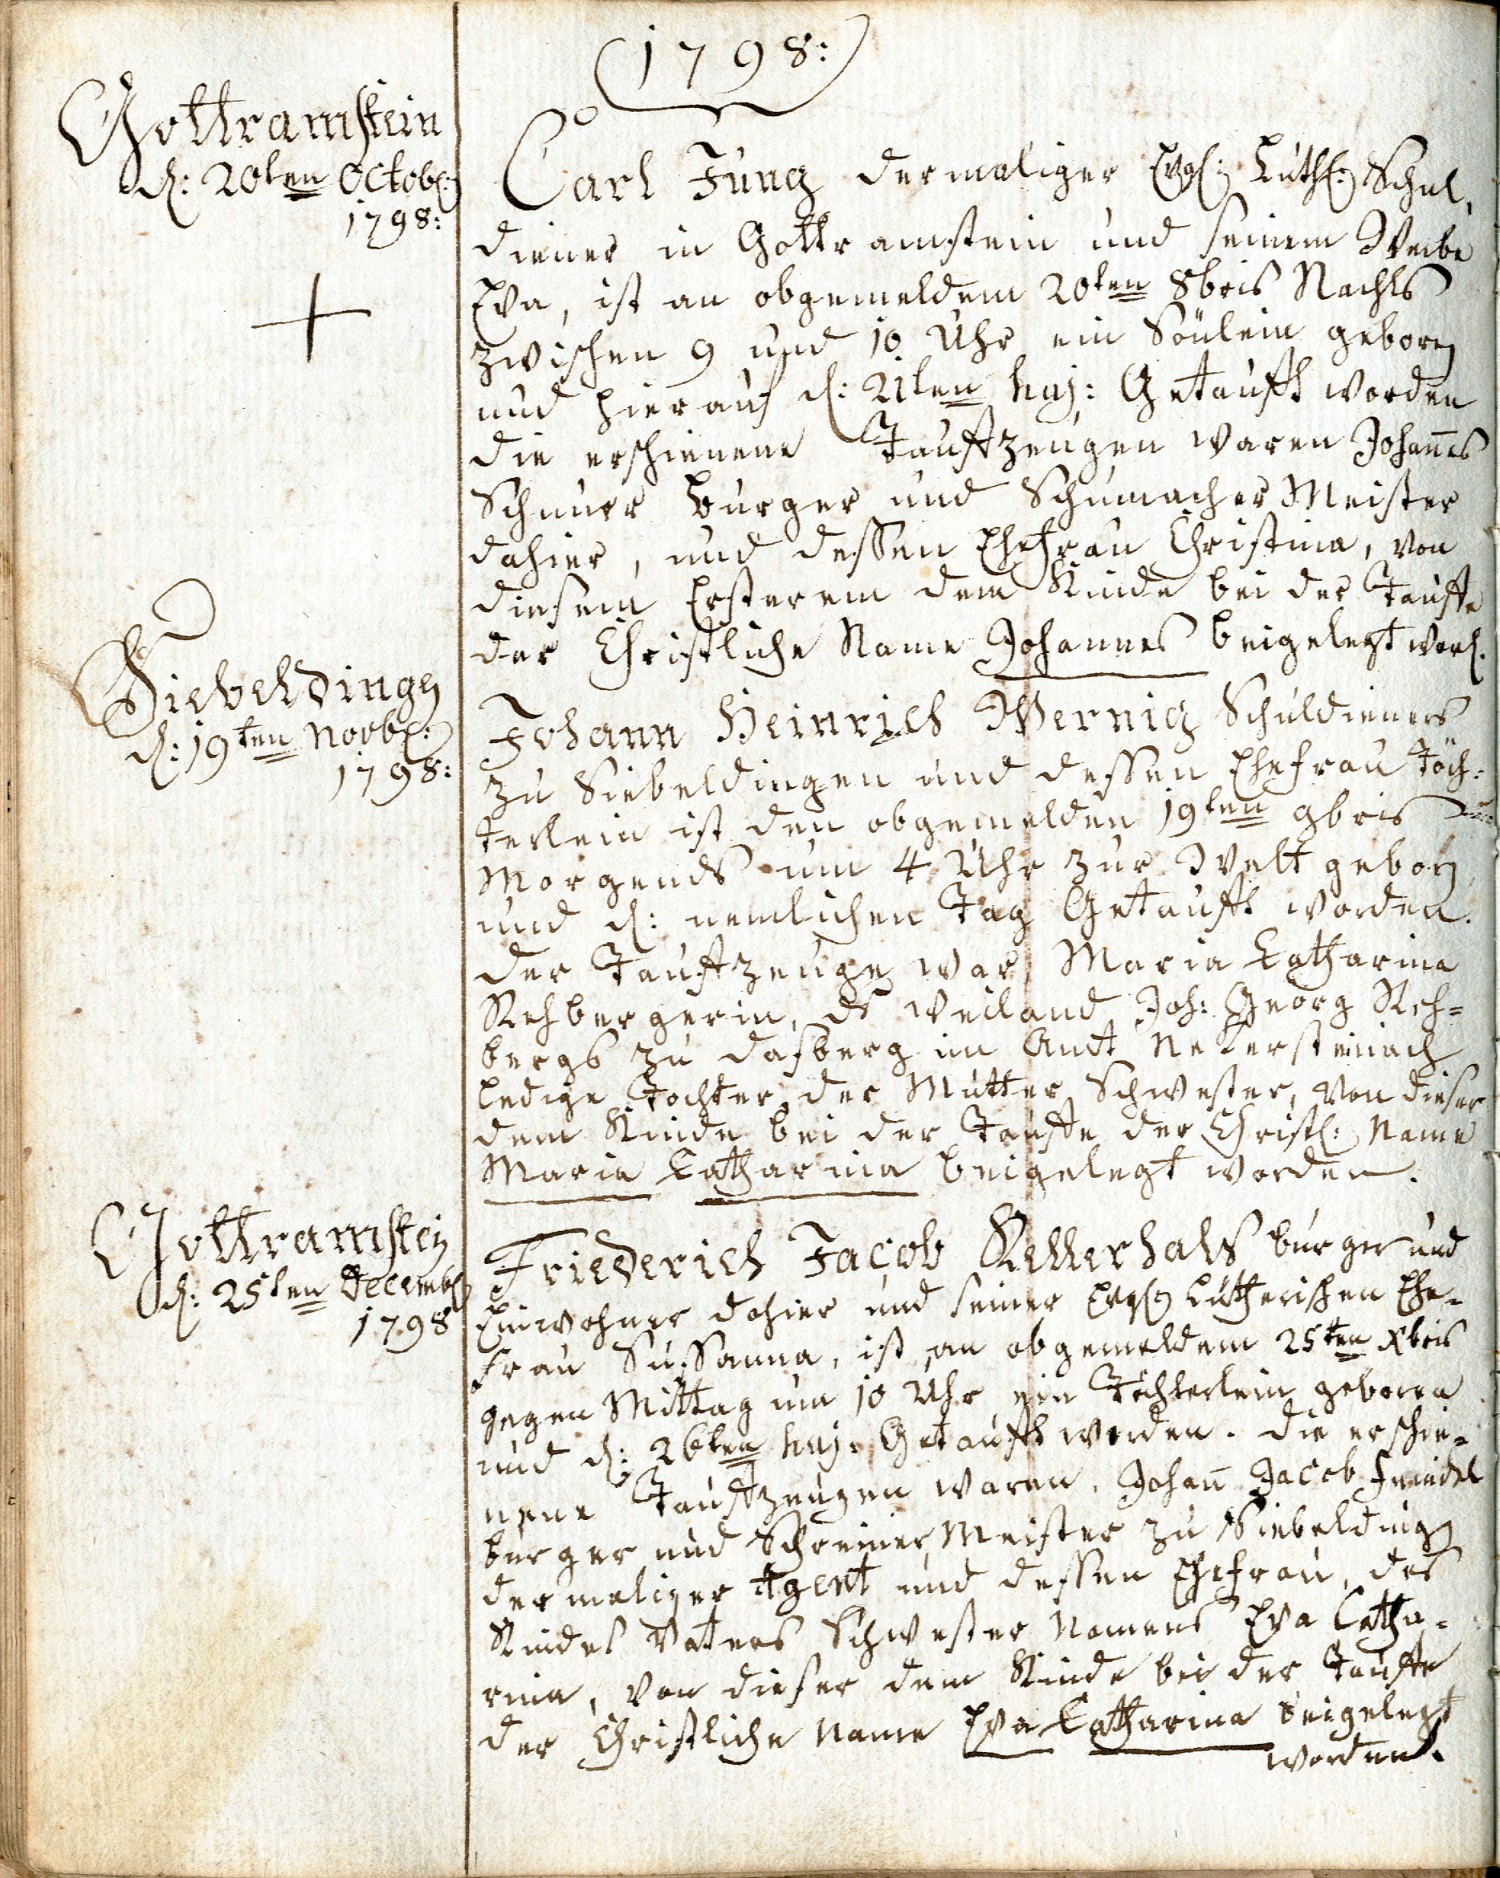 1798:
Gottramstein
d: 20ten Octob:
1798:
Carl Jung dermaliger Evgl: Luth: Schul,
diener in Gottramstein und seinem Weibe
Eva, ist an obgemeldem 20ten 8bris Nachts
zwischen 9 und 10 Uhr ein Sönlein geboren
und hierauf d: 21ten huj: Getaufft worden
die erschienene Tauffzeugen waren Johañes
Schnurr Burger und Schumacher Meister
dahier, und dessen Ehefrau Christina, von
diesem Ersterem dem Kinde bei der Tauffe
der Christliche Name Johannes beigelegt word.
Siebeldingen
d: 19ten Novb:
1798:
Johann Heinrich Wernig Schuldieners
zu Siebeldingen und dessen Ehefrau Töch:
terlein ist den obgemelden 19ten 9bris
Morgends um 4 Uhr zur Welt geborn
und d: nemlichen Tag Getaufft worden.
der Tauffzeuge war, Maria Katharina
Rehbergerin, des weiland Joh: Georg Reh=
bergs zu dasberg im Amt Nekersteinach
ledige Tochter, der Mutter Schwester, von dieser
dem Kinde bei der Tauffe der Christl: Name
Maria Katharina beigelegt worden.
Gottramstein
d: 25ten Decemb:
1798
Friederich Jacob Kellerhals burger und
Einwohner dahier und seiner Evgl: Lutherischen Ehe=
frau Susanna, ist an obgemeldem 25ten Xbris
gegen Mittag um 10 Uhr ein Töchterlein geboren
und d: 26ten huj: Getaufft worden. die erschie=
nene Tauffzeugen waren, Johañ Jacob
burger und Schreiner Meister zu Siebelding
dermaliger Agent und dessen Ehefrau, des
Kindes Vaters Schwester Namens Eva Catha=
rina, von dieser dem Kinde bei der Tauffe
der Christliche Name Eva Katharina beigelegt
worden.